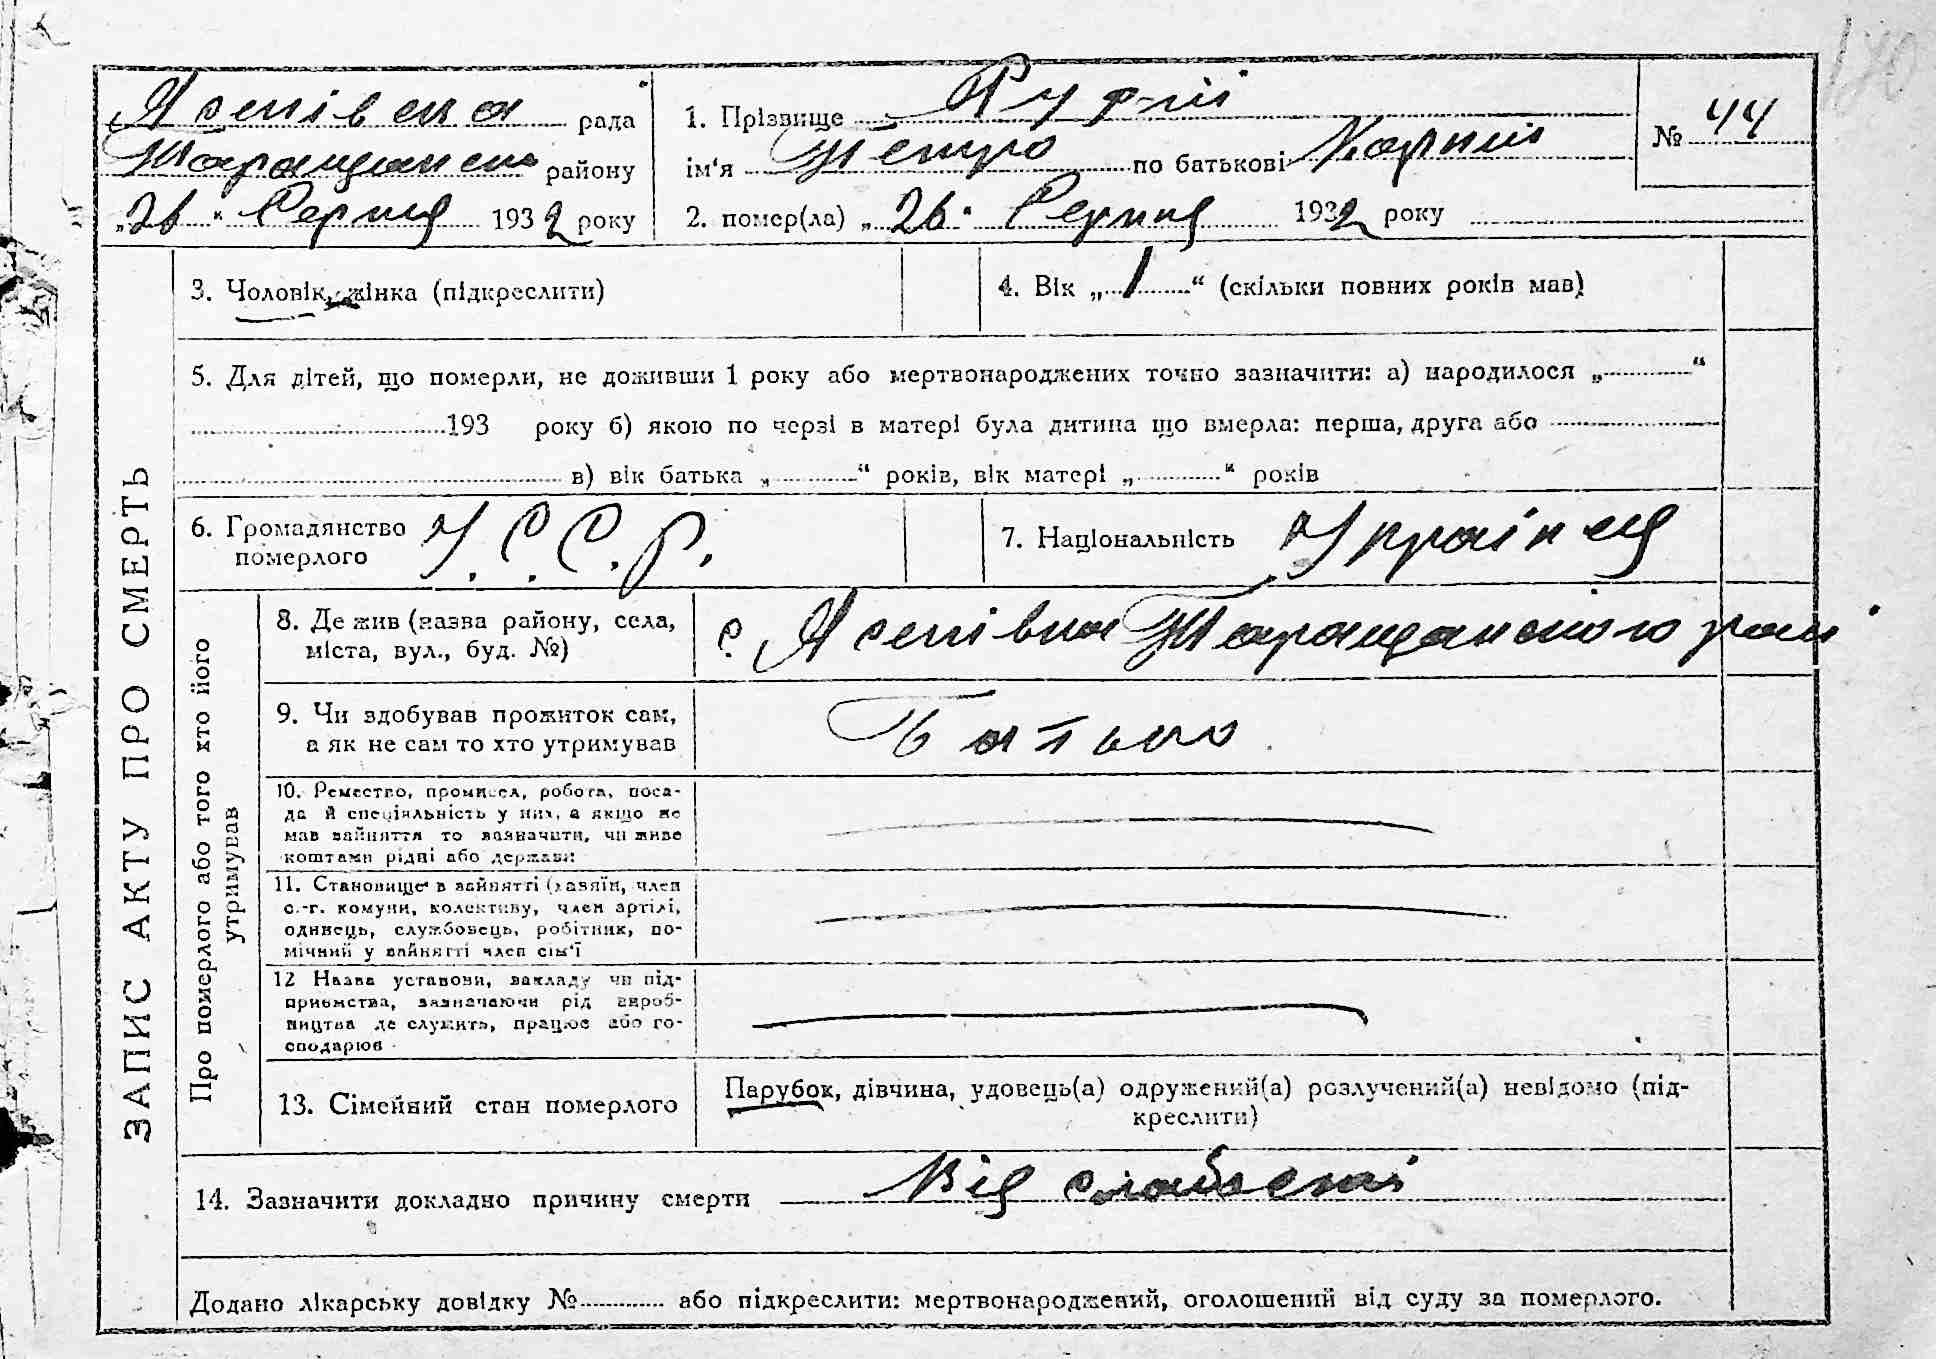 180
Ясенівська рада
Таращанськ району
„26“ Серпня 1932 року
1. Прізвище
ім‘я Петро по батькові Карпів
2. помер(ла) „26“ Серпня 1932 року
№ 44
ЗАПИС АКТУ ПРО СМЕРТЬ
3. Чоловік, жінка (підкреслити)
4. Вік „1“ (скільки повних років мав)
5. Для дітей, що померли, не доживши 1 року або мертвонароджених точно зазначити: а) народилося „ “
193 року б) якою по черзі в матері була дитина що вмерла: перша, друга або
в) вік батька „ “ років, вік матері „ “ років
6. Громадянство
померлого
У.С.С.Р.
7. Національність Українец
Про померлого або того хто його
утримував
8. Де жив (назва району, села,
міста, вул., буд. №)
с. Ясенівка Таращанського рай
9. Чи здобував прожиток сам,
а як не сам то хто утримував
Батько
10. Ремество, промисел, робота, поса-
да й спеціяльність у них, а якщо не
мав зайняття то зазначити, чи живе
коштами рідні або держави
11. Становище в зайнятті (хазяїн, член
с.-г. комуни, колективу, член артілі,
одинець, службовець, робітник, по-
мічний у зайнятті член сім‘ї
12 Назва установи, закладу чи під-
приємства, зазначаючи рід вироб-
ництва де служить, працює або го-
сподарює
13. Сімейний стан померлого
Парубок, дівчина, удовець(а) одружений(а) розлучений(а) невідомо (під-
креслити)
14. Зазначити докладно причину смерти Від слабості
Додано лікарську довідку № або підкреслити: мертвонароджений, оголошений від суду за померлого.